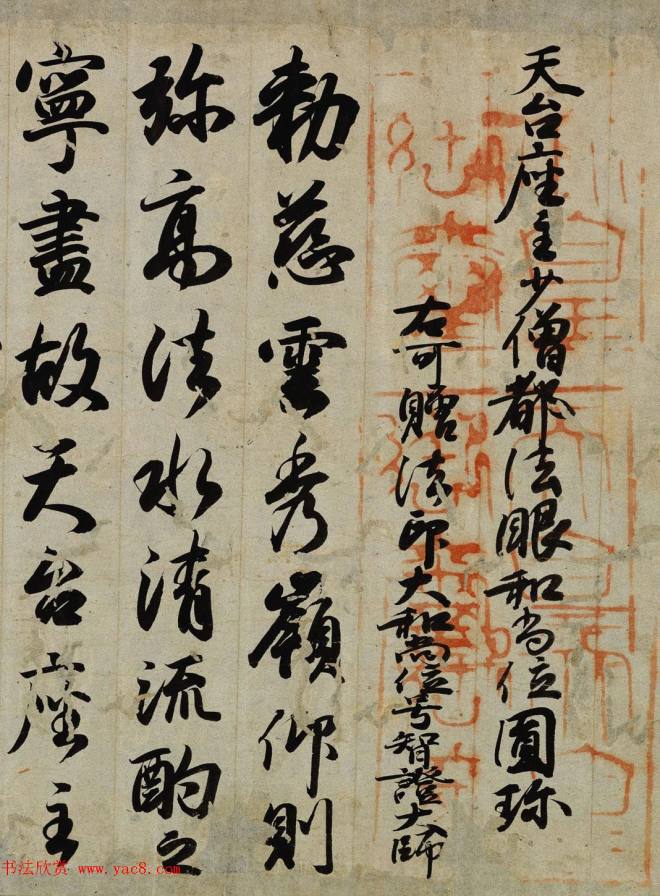 天台座主少僧都法眼和尚位圓珎
右可贈法印大和尚位号智證大師
勑慈雲秀嶺仰則
弥高法水清流酌之
寧盡故天台座主
书法欣赏 www.yac8.com